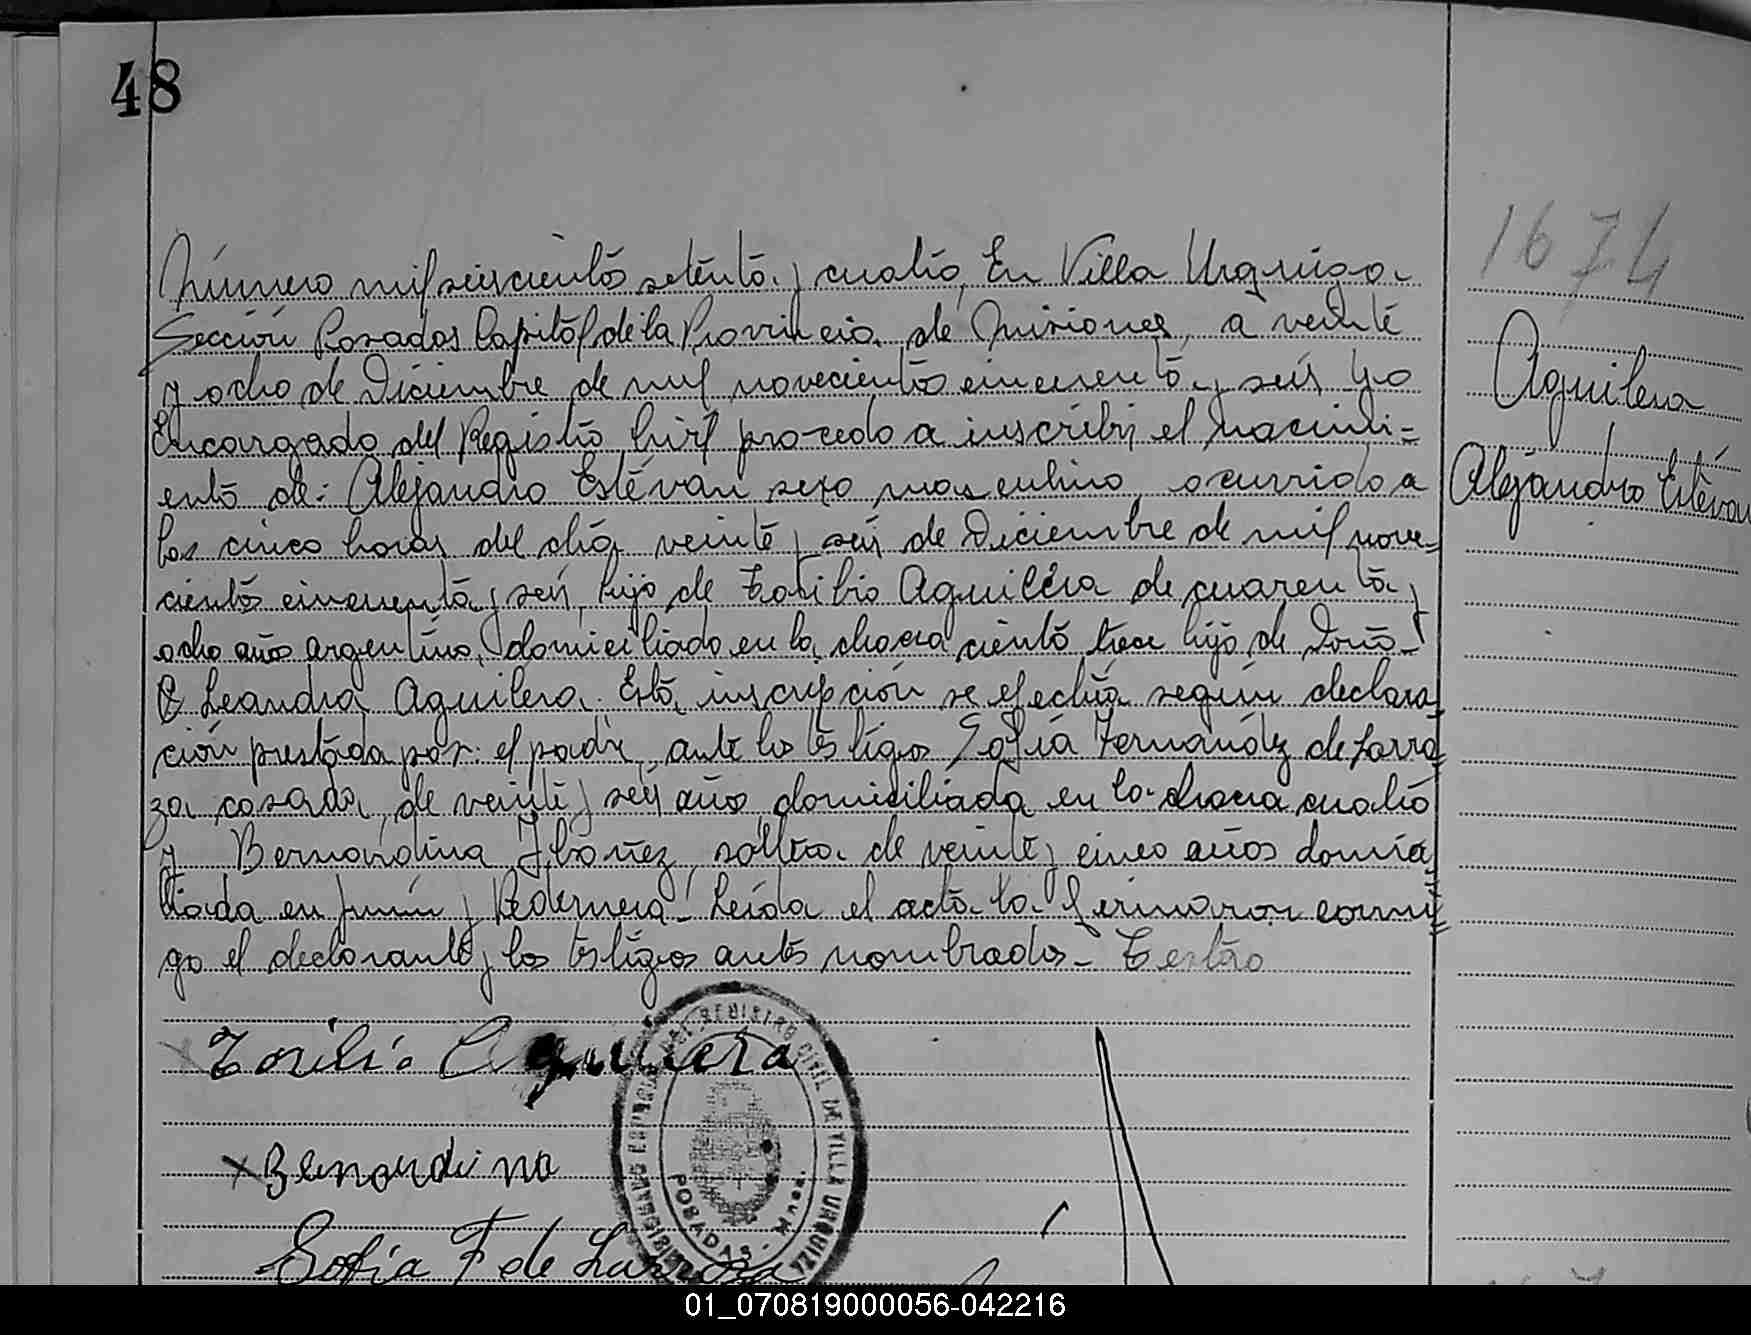 48
Número mil seiscientos setenta y cuatro, En Villa Urquiza
Sección Posadas Capital de la Provincia de Misiones, a veinte
y ocho de Diciembre de mil novecientos cincuenta y seis yo
Encargado del Registro Civil procedo a inscribir el nacimi-
ento de: Alejandro Estévan sexo masculino ocurrido a
las cinco horas del día veinte y seis de Diciembre de mil nove-
cientos cincuenta y seis, hijo de Toribio Aguilera de cuarenta y
ocho años argentino, domiciliado en la chacra ciento trece hijo de Doña
Leandra Aguilera. Esta inscripción se efectúa según declara
ción prestada por: el padre, ante los testigos Sofía Fernández de Larra
za casada, de veinte y seis años domiciliada en la chacra cuatro
y Bernardina Ibañez, soltera de veinte y cinco años domici
liada en Junín y Pedernera- Leída el acta la firmaron conmi
go el declarante y los testigos antes nombrados- Testao
1674
Aguilera
Alejandro Estévan
Toribio Aguilera
x Bernardina
Sofía F de Larraza
REGISTRO CIVIL DE VILLA URQUIZA
POSADAS - Mnes.
01_070819000056-042216